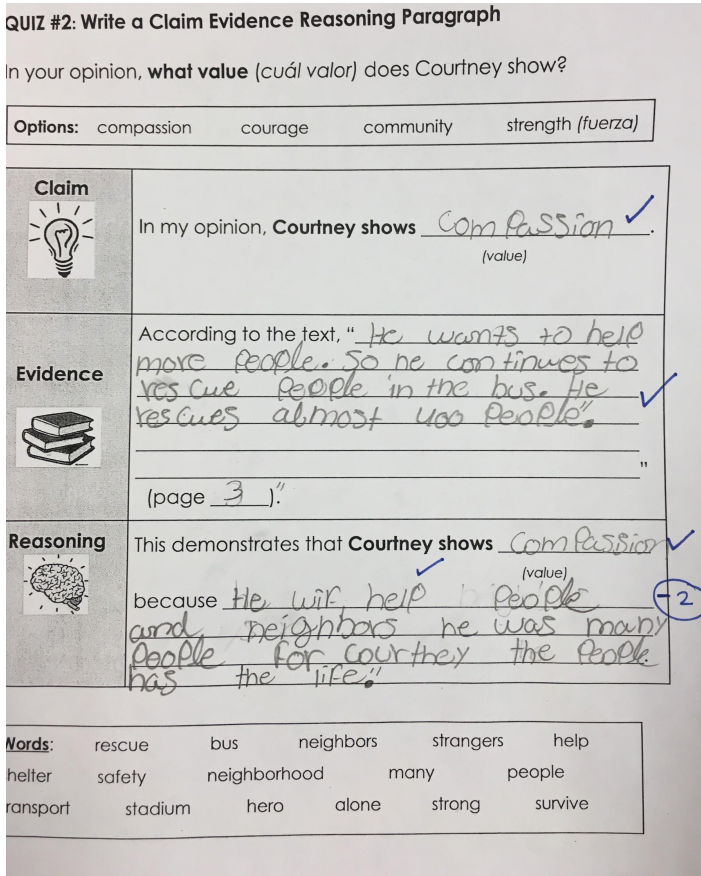 QUIZ #2: Write a Claim Evidence Reasoning Paragraph
In your opinion, what value (cuál valor) does Courtney show?
Options: compassion courage community strength (fuerza)
Claim
In my opinion, Courtney shows compassion ✓.
(value)
Evidence
According to the text, "He wants to help
more people. So he continues to
rescue people in the bus. He
rescues almost 400 people".
"
(page 3)."
Reasoning
This demonstrates that Courtney shows compassion ✓
(value)
because He help people -2
and neighbors he was many
people for courthey the people
has the life."
Words: rescue bus neighbors strangers help
helter safety neighborhood many people
ransport stadium hero alone strong survive